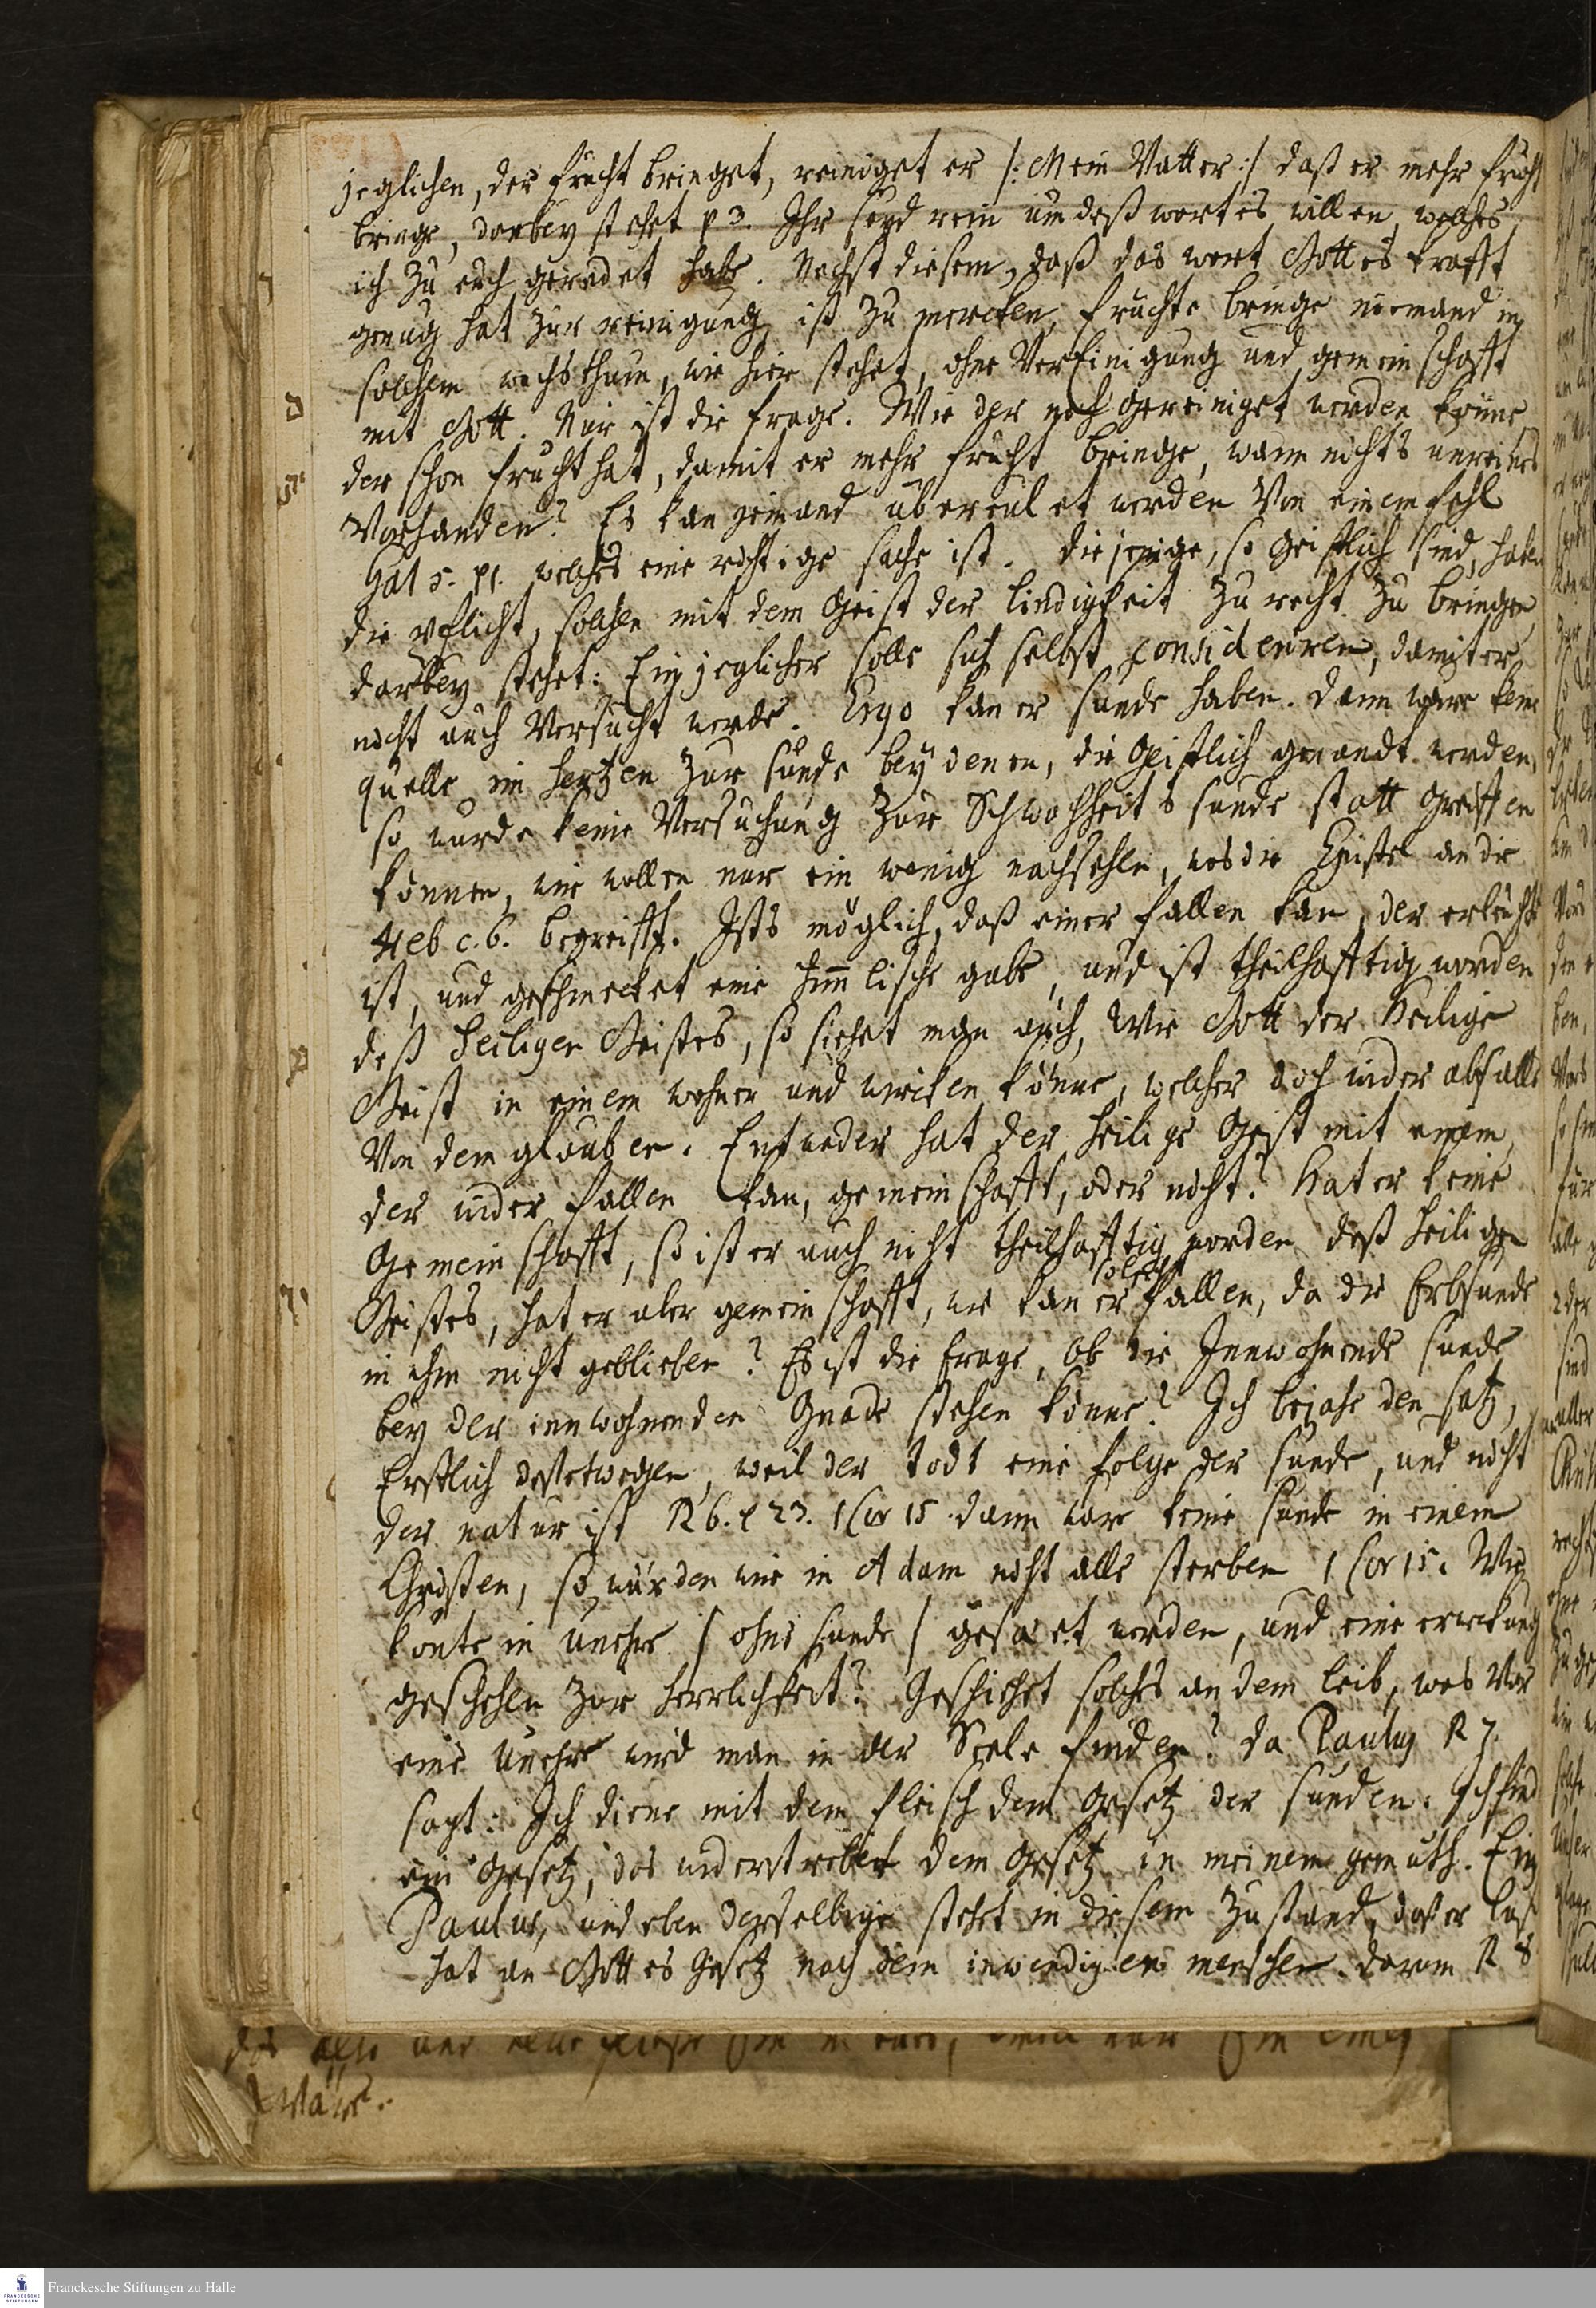 jeglichen, der frucht bringet, reiniget er /: Mein Vatter :/ daß er mehr frucht
bringe, darbey stehet p 3. Ihr seyd rein um deß wortes willen, welches
ich zu euch geredet habe. Nechst diesem, daß das wort Gottes krafft
genug hat zur reinigung, ist zu mercken, früchte bringe niemand in
solchem wachsthum, wie hier stehet, ohne VerEinigung und gemeinschafft
mit Gott. Nur ist die frage. Wie der noch gereiniget werden könne,
der schon frucht hat, damit er mehr frucht bringe, wann nichts unreines
Vorhanden? Es kan jemand übereulet werden Von einem fehl
Gal 5. p1. welches eine richtige sache ist. diejenige, so geistlich sind, haben
die pflicht, solchen mit dem Geist der lindigkeit zu recht zu bringen,
darbey stehet: Ein jeglicher solle sich selbst consideriren, damit er
nicht auch Versucht werde. Ergo kan er sünde haben. Dann wäre keine
quelle im hertzen zur sünde bey denen, die Geistlich genandt werden,
so wurde keine Versuchung zur Schwachheits sünde statt greiffen
können, wir wollen nur ein wenig nachsehen, was die Epistel an die
Heb c. 6. begreifft. Ists möglich, daß einer fallen kan, der erleuchtet
ist, und geschmecket eine himlische gabe, und ist theilhafftig worden
deß heiligen Geistes, so siehet man auch, Wie Gott der Heilige
Geist in einem wohnen und wircken könne, welcher doch wider abfalle
Von dem glauben. Entweder hat der heilige Geist mit einem,
der wider fallen kan, gemeinschafft, oder nicht? Hat er keine
Gemeinschafft, so ist er auch nicht theilhafftig worden deß heiligen
Geistes, hat er aber gemeinschafft, wie kan er solcher fallen, da die Erbsünde
in ihm nicht geblieben? Es ist die frage, Ob die Innwohnende sünde
bey der innwohnenden Gnade stehen könne? Ich bejahe den satz,
Erstlich destetwegen, weil der todt eine folge der sünde, und nicht
der natur ist R 6. p 23. 1 Cor 15. dann wäre keine sünde in einem
Christen, so würden wir in Adam nicht alle sterben 1 Cor 15. Wie
könte in unehre / ohne sünde / gesäet werden, und eine erweckung
geschehen zur herrlichkeit? Geschiehet solches an dem leib, was Vor
eine Unehre wird man in der Seele finden? da Paulus R 7.
sagt: Ich diene mit dem fleisch dem Gesetz der sünden. Ich find
ein Gesetz, das widerstrebet dem Gesetz in meinem gemüth. Ein
Paulus, und eben derselbige stehet in diesem Zustand, daß er lust
hat an Gottes Gesetz nach dem inwendigen menschen. darum R 8
wäre.
Franckesche Stiftungen zu Halle